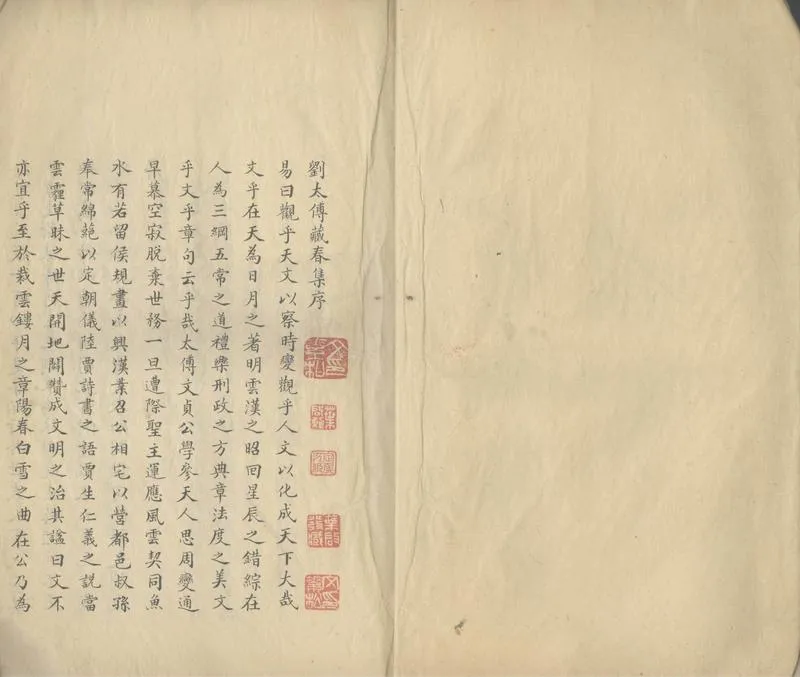 劉太傅藏春集序
易曰觀乎天文以察時變觀乎人文以化成天下大哉
文乎在天為日月之著明雲漢之昭回星辰之錯綜在
人為三綱五常之道禮樂刑政之方典章法度之美文
乎文乎章句云乎哉太傅文貞公學參天人思周變通
早慕空寂脫棄世務一旦遭際聖主運應風雲契同魚
水有若留侯規畫以興漢業召公相宅以營都邑叔孫
奉常綿蕝以定朝儀陸賈詩書之語賈生仁義之說當
雲霾草昧之世天開地闢贊成文明之治其諡曰文不
亦宜乎至於裁雲鏤月之章陽春白雪之曲在公乃為